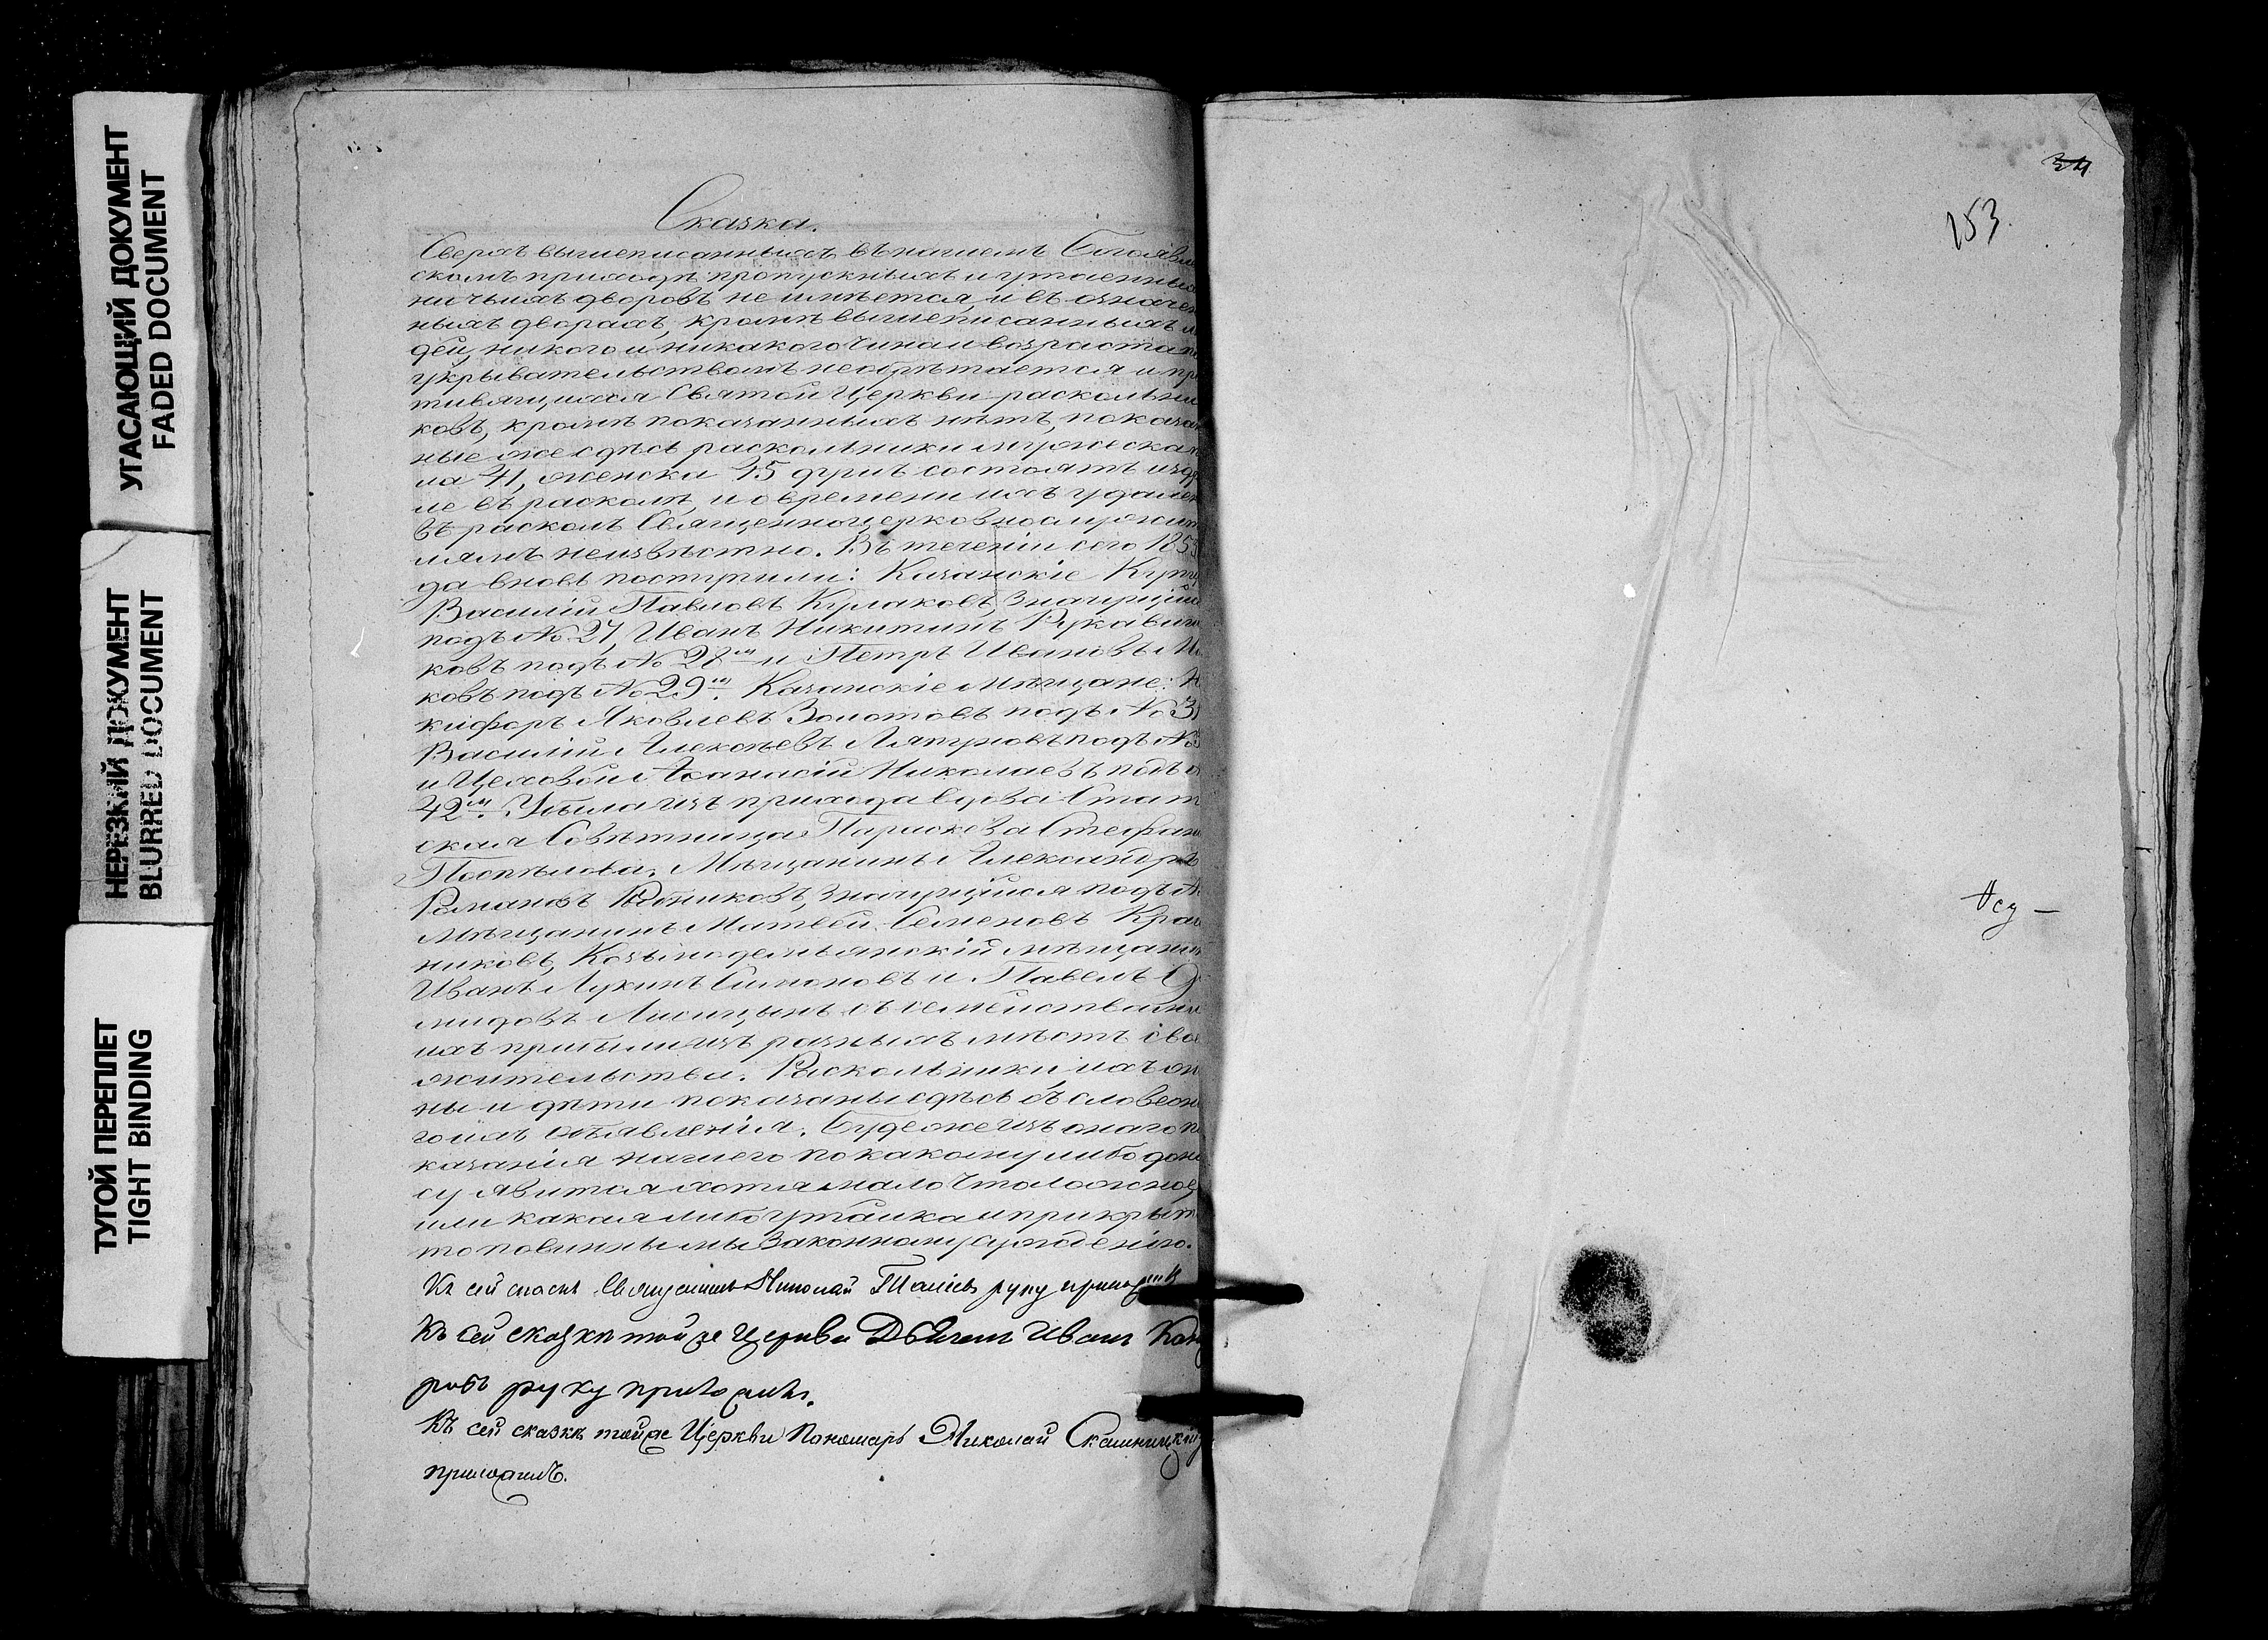 УГАСАЮЩИЙ ДОКУМЕНТ
FADED DOCUMENT
НЕРЕЗКИЙ ДОКУМЕНТ
BLURRED DOCUMENT
ТУГОЙ ПЕРЕПЛЕТ
TIGHT BINDING
Сказка.
Сверхъ вышеписанныхъ въ нашемъ Богоявлен
скомъ приходѣ пропускныхъ и утаенныхъ
ничьихъ дворовъ не имѣется, и въ означен
ныхъ дворахъ, кромѣ вышеписанныхъ лю
дей, никого и никакого чина и возраста
укрывательствомъ необрѣтается и про
тивящихся Святой Церкви раскольни
ковъ, кромѣ показанныхъ нѣтъ, показан
ные же сдѣсь раскольники мужеска по
ла 41, женска 45 душъ состоятъ издре
ле въ расколѣ, и о времени ихъ удален
въ расколъ Священноцерковнослужит
лямъ неизвѣстно. Въ теченіи сего 1853
да вновь поступили: Казанскіе Купцы
Василій Павловъ Кулаковъ, значущійся
подъ № 27, Иванъ Никитинъ Рукавиш
ковъ подъ № 28мъ и Петръ Ивановъ
ковъ подъ № 29мъ. Казанскіе мѣщане: Ни
кифоръ Яковлевъ Золотовъ подъ № 3
Василій Алексѣевъ Ляпуновъ подъ №
и Цеховой Аѳанасій Николаевъ подъ
42мъ. Убыла изъ прихода вдова Стат
ская Совѣтница Параскева Стефан
Поспѣлова. Мѣщанинъ Александръ
Романовъ значущійся подъ №
Мѣщанинъ Матвей Семеновъ Краш
никовъ, Козьмодемьянскій мѣщанинъ
Иванъ Лукинъ Симоновъ и Павелъ
мидовъ Лисицынъ съ семействами
ихъ прибыли изъ разныхъ мѣстъ сво
жительства. Раскольники, ихъ же
ны и дѣти показаны сдѣсь съ словесна
го ихъ объявленія. Буде же изъ онаго по
казанія нашего по какому либо доно
су явится хотя мало что ложное,
или какая либо утайка и прикрыт
то повинны мы законному сужденію.
Къ сей сказкѣ Священникъ Николай руку приложилъ
Къ сей сказкѣ той же Церкви Дьячекъ Иванъ
ровъ руку приложилъ.
Къ сей сказкѣ тойже Церкви Пономарь Николай
приложилъ.
34
153